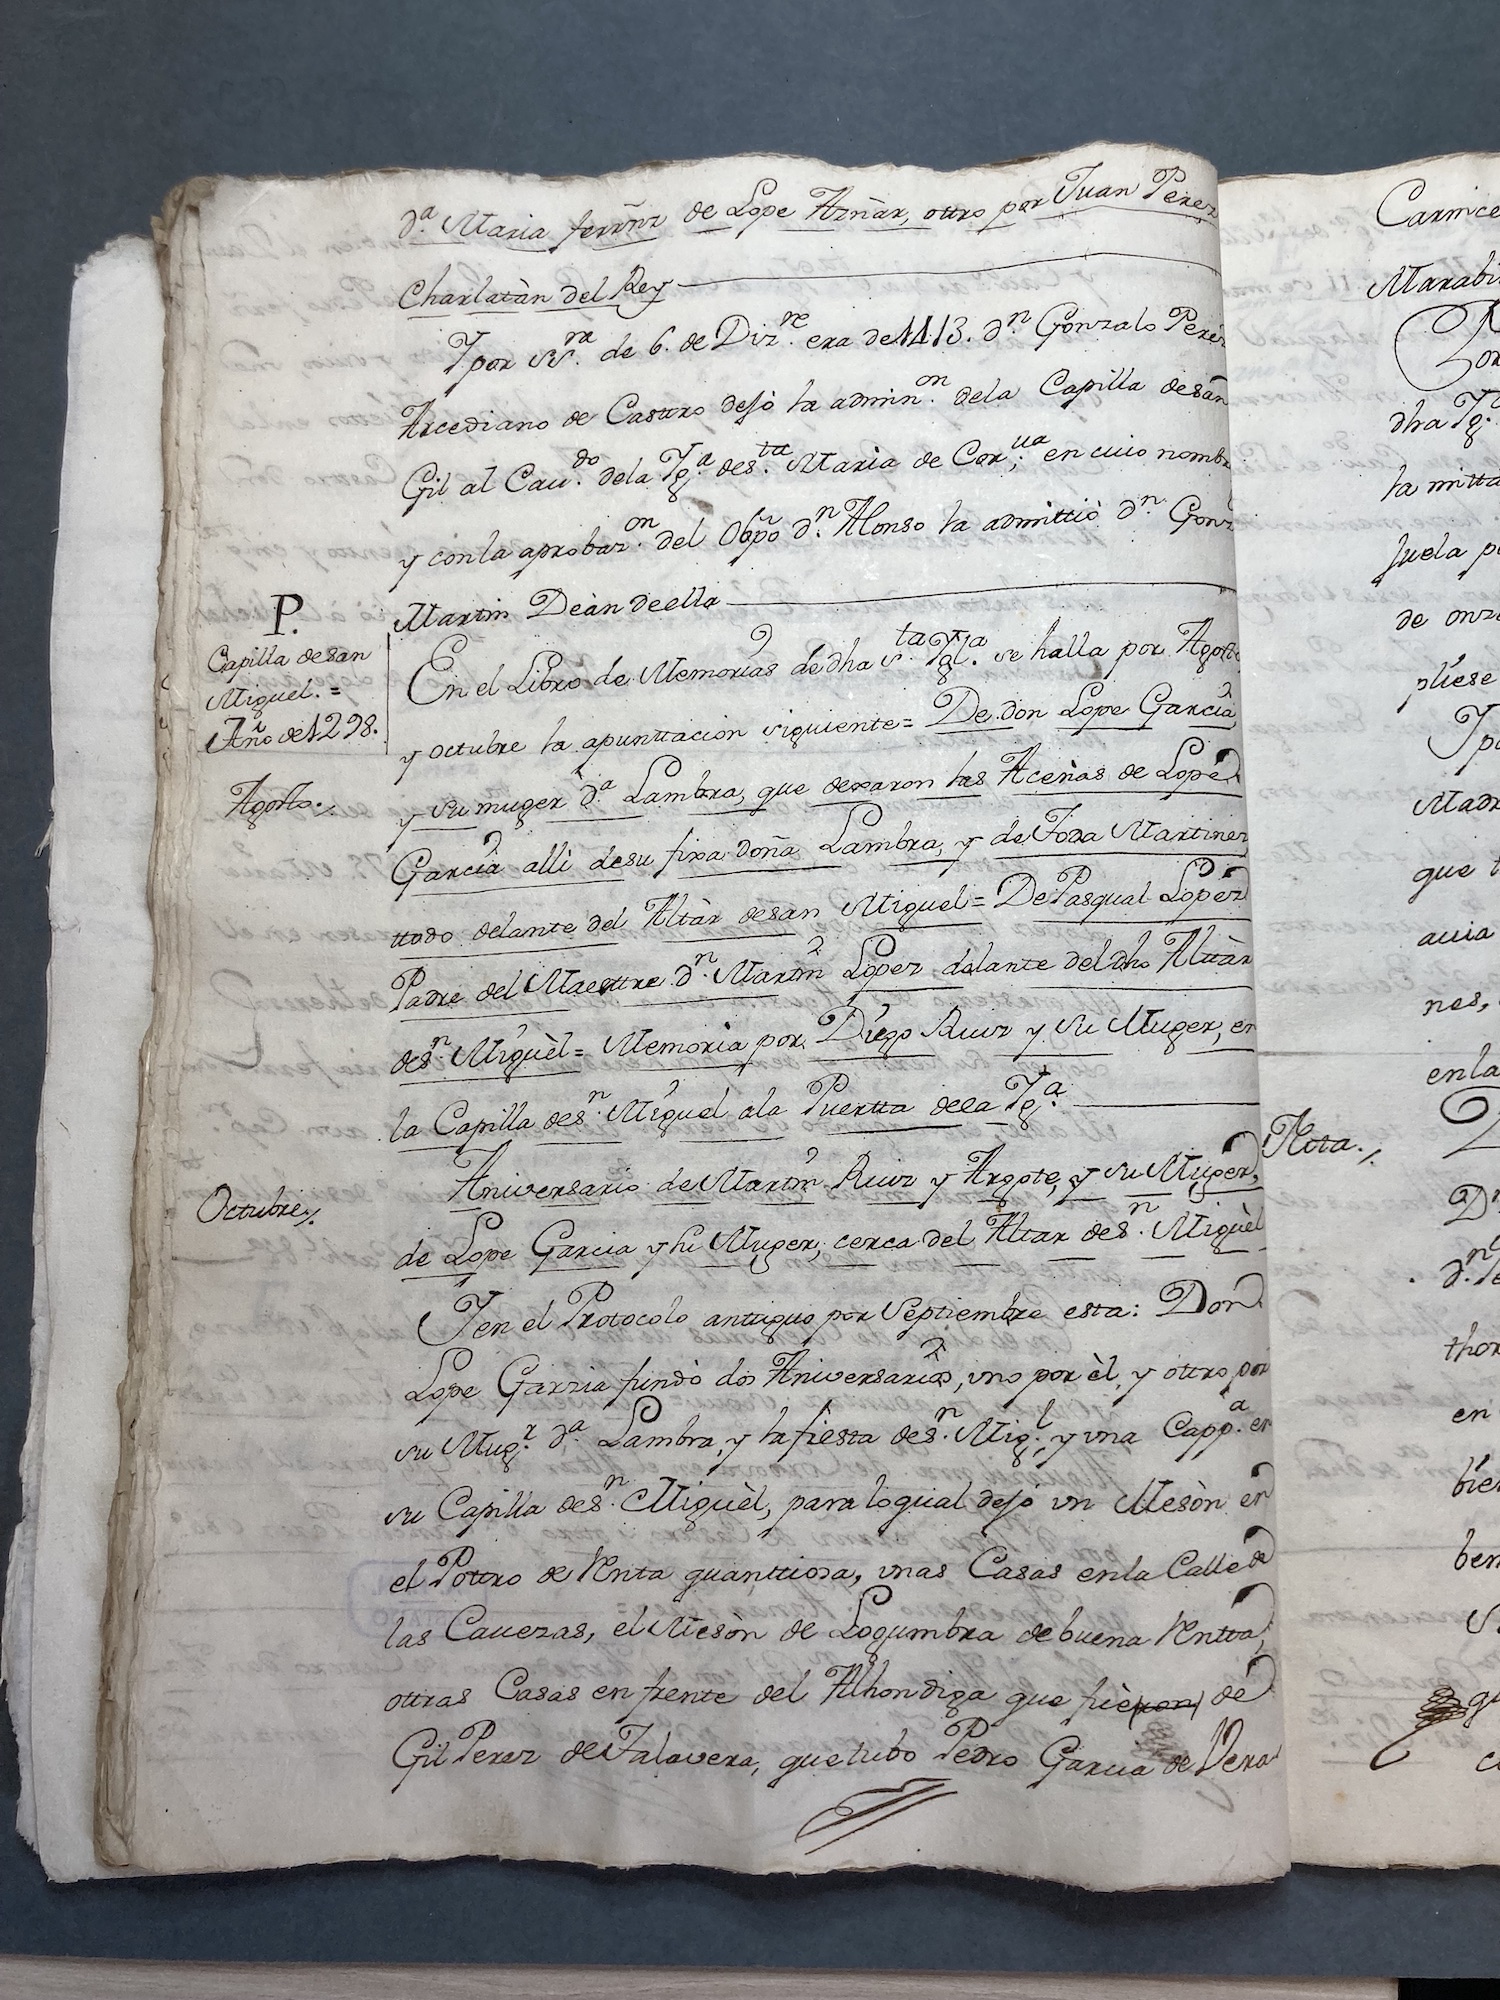 d.ª Maria ferrñz de Lope Aznàr, ottro por Juan Perez
Charlatàn del Rey
Y por ss.ra de 6. de Diz.re era de 1413. d.n Gonzalo Perèz
Arcediano de Castro dejò la admin.on de la Capilla de san
Gil al Cau.do de la Yg.ª de s.ta Maria de Cor.ua en cuio nombr
y con la aprobaz.on del Obpo d.n Alonso la admittiò d.n Gonz
Martin Deàn de ella
P.
Capilla de san
Miguel. =
Año de 1298.
En el Libro de Memorias de dha s.ta Ygl.ª se halla por Agosto
y octubre la apunttacion siguiente = De don Lope Garcia,
Agosto./.
y su muger d.ª Lambra, que dexaron las Aceñas de Lope
Garcia alli de su fixa doña Lambra, y de Foxa Martinez
ttodo delante del Altàr de san Miguel = De Pasqual Lopez
Padre del Maesttre d.n Martin Lopez delante del dho Alttàr
de s.n Miguèl = Memoria por Diego Ruiz y su Muger, en
la Capilla de s.n Miguel a la Puertta de la Yg.ª
Octubre./.
Aniversario de Martin Ruiz y Argote, y su Muger,
de Lope Garcia y su Muger, cerca del Altar de s.n Miguèl
Y en el Protocolo anttiguo por Septiembre esta: Don
Lope Garzia fundò dos Aniversarios, vno por èl, y ottro por
su Mug.r d.ª Lambra, y la fiesta de s.n Mig.l, y vna Capp.ª en
su Capilla de s.n Miguèl, para lo qual dejò vn Mesòn en
el Pottro de Renta quanttiosa, vnas Casas en la Calle de
las Cauezas, el Mesòn de Logumbra de buena Rentta,
ottras Casas en frente del Alhondiga que fue(ron) de
Gil Perez de Talavera, que tubo Pedro Garcia de Vera
Carnice
Marabi
dha Yg.
la mitta
juela p
de onz
pliese
Y p
Madr
que t
auia
nes,
en la
Notta./.
D.n
thor
en
bie
ben